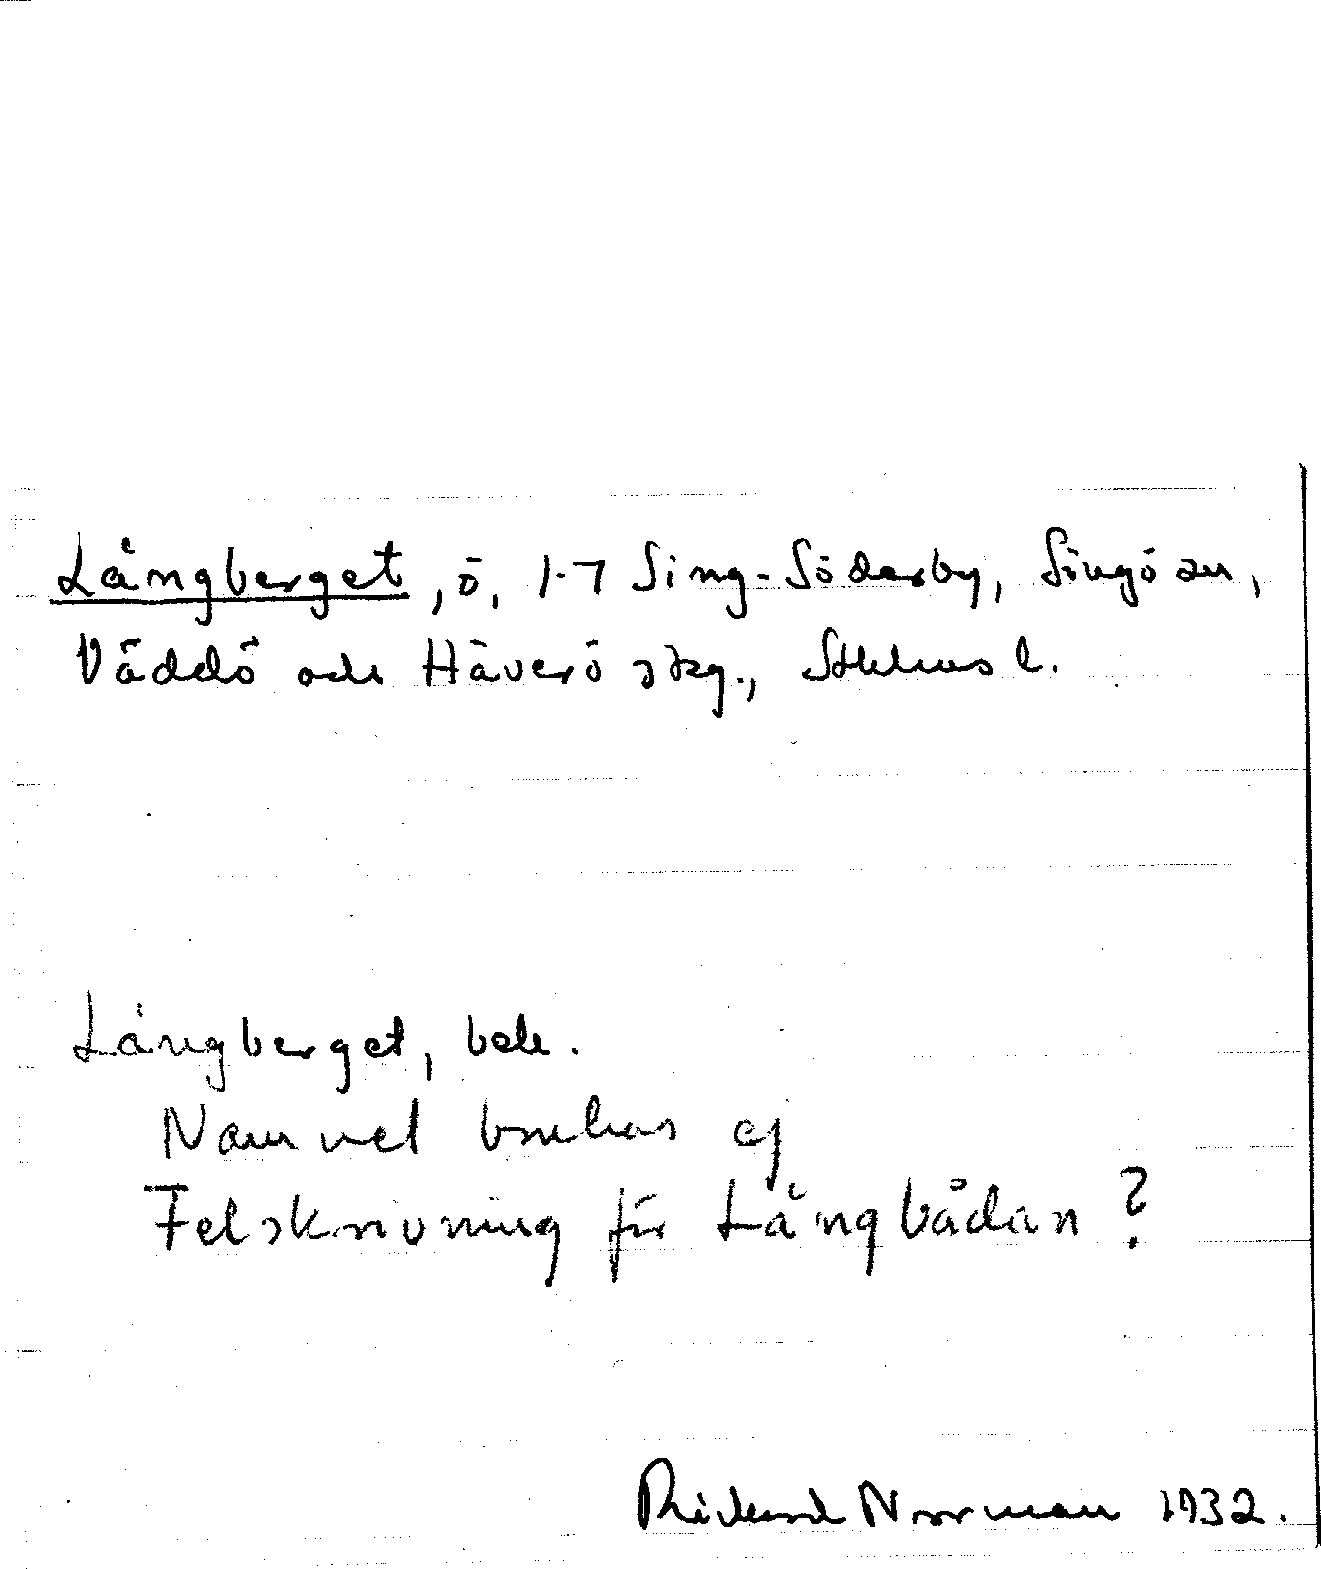 Långberget, ö, 1-7 Sing-Söderby, Singö sn,
Väddö och Häverö skg., Sthlms l.
Långberget, bek.
Namnet brukas ej
Felskrivning för Långbådan?
Rickard Norrman 1932.